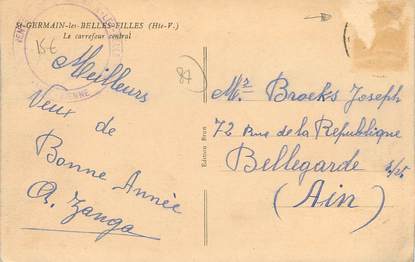 St-GERMAIN-les-BELLES-FILLES (Hte-V.)
Le carrefour central
15€
87
Meilleurs
Vœux de
Bonne Année
A. Zanga
Edition Brun
Mr Broeks Joseph
72 Rue de la République
Bellegarde s/
(Ain)